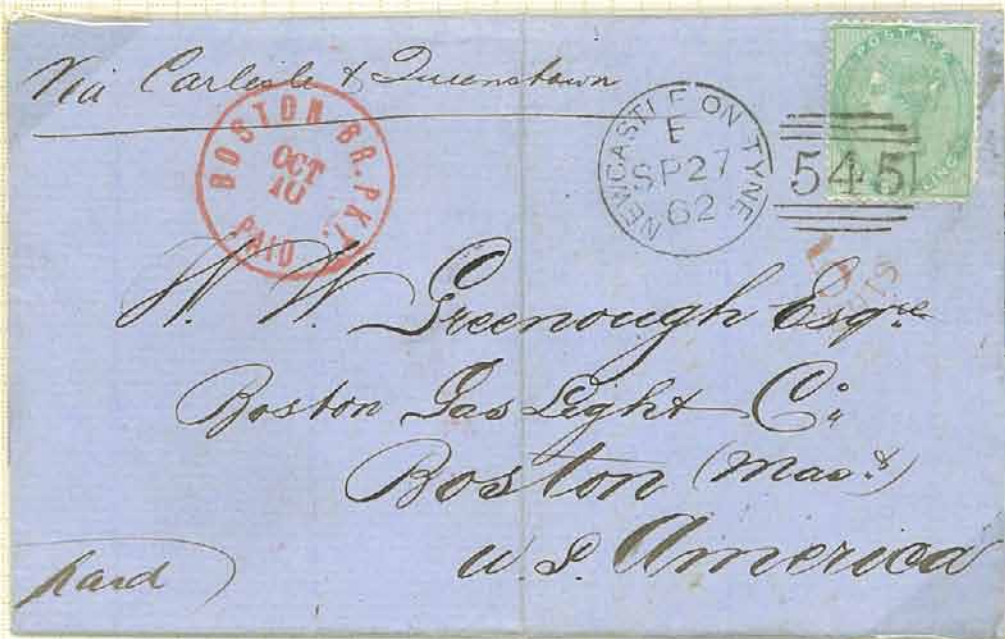 Via Carlisle & Queenstown
BOSTON BR. PKT.
OCT
10
PAID
NEWCASTLE ON TYNE
E
SP 27
62
545
POSTAGE
W. W. Greenough Esqre
Boston Gas Light Co
Boston (Mass.)
U.S. America
paid